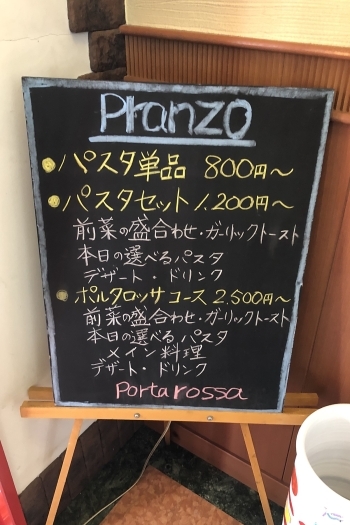 Pranzo
パスタ単品 800円〜
パスタセット 1.200円〜
前菜の盛合わせ・ガーリックトースト
本日の選べるパスタ
デザート・ドリンク
ポルタロッサコース 2,500円〜
前菜の盛合わせ・ガーリックトースト
本日の選べるパスタ
メイン料理
デザート・ドリンク
Porta rossa